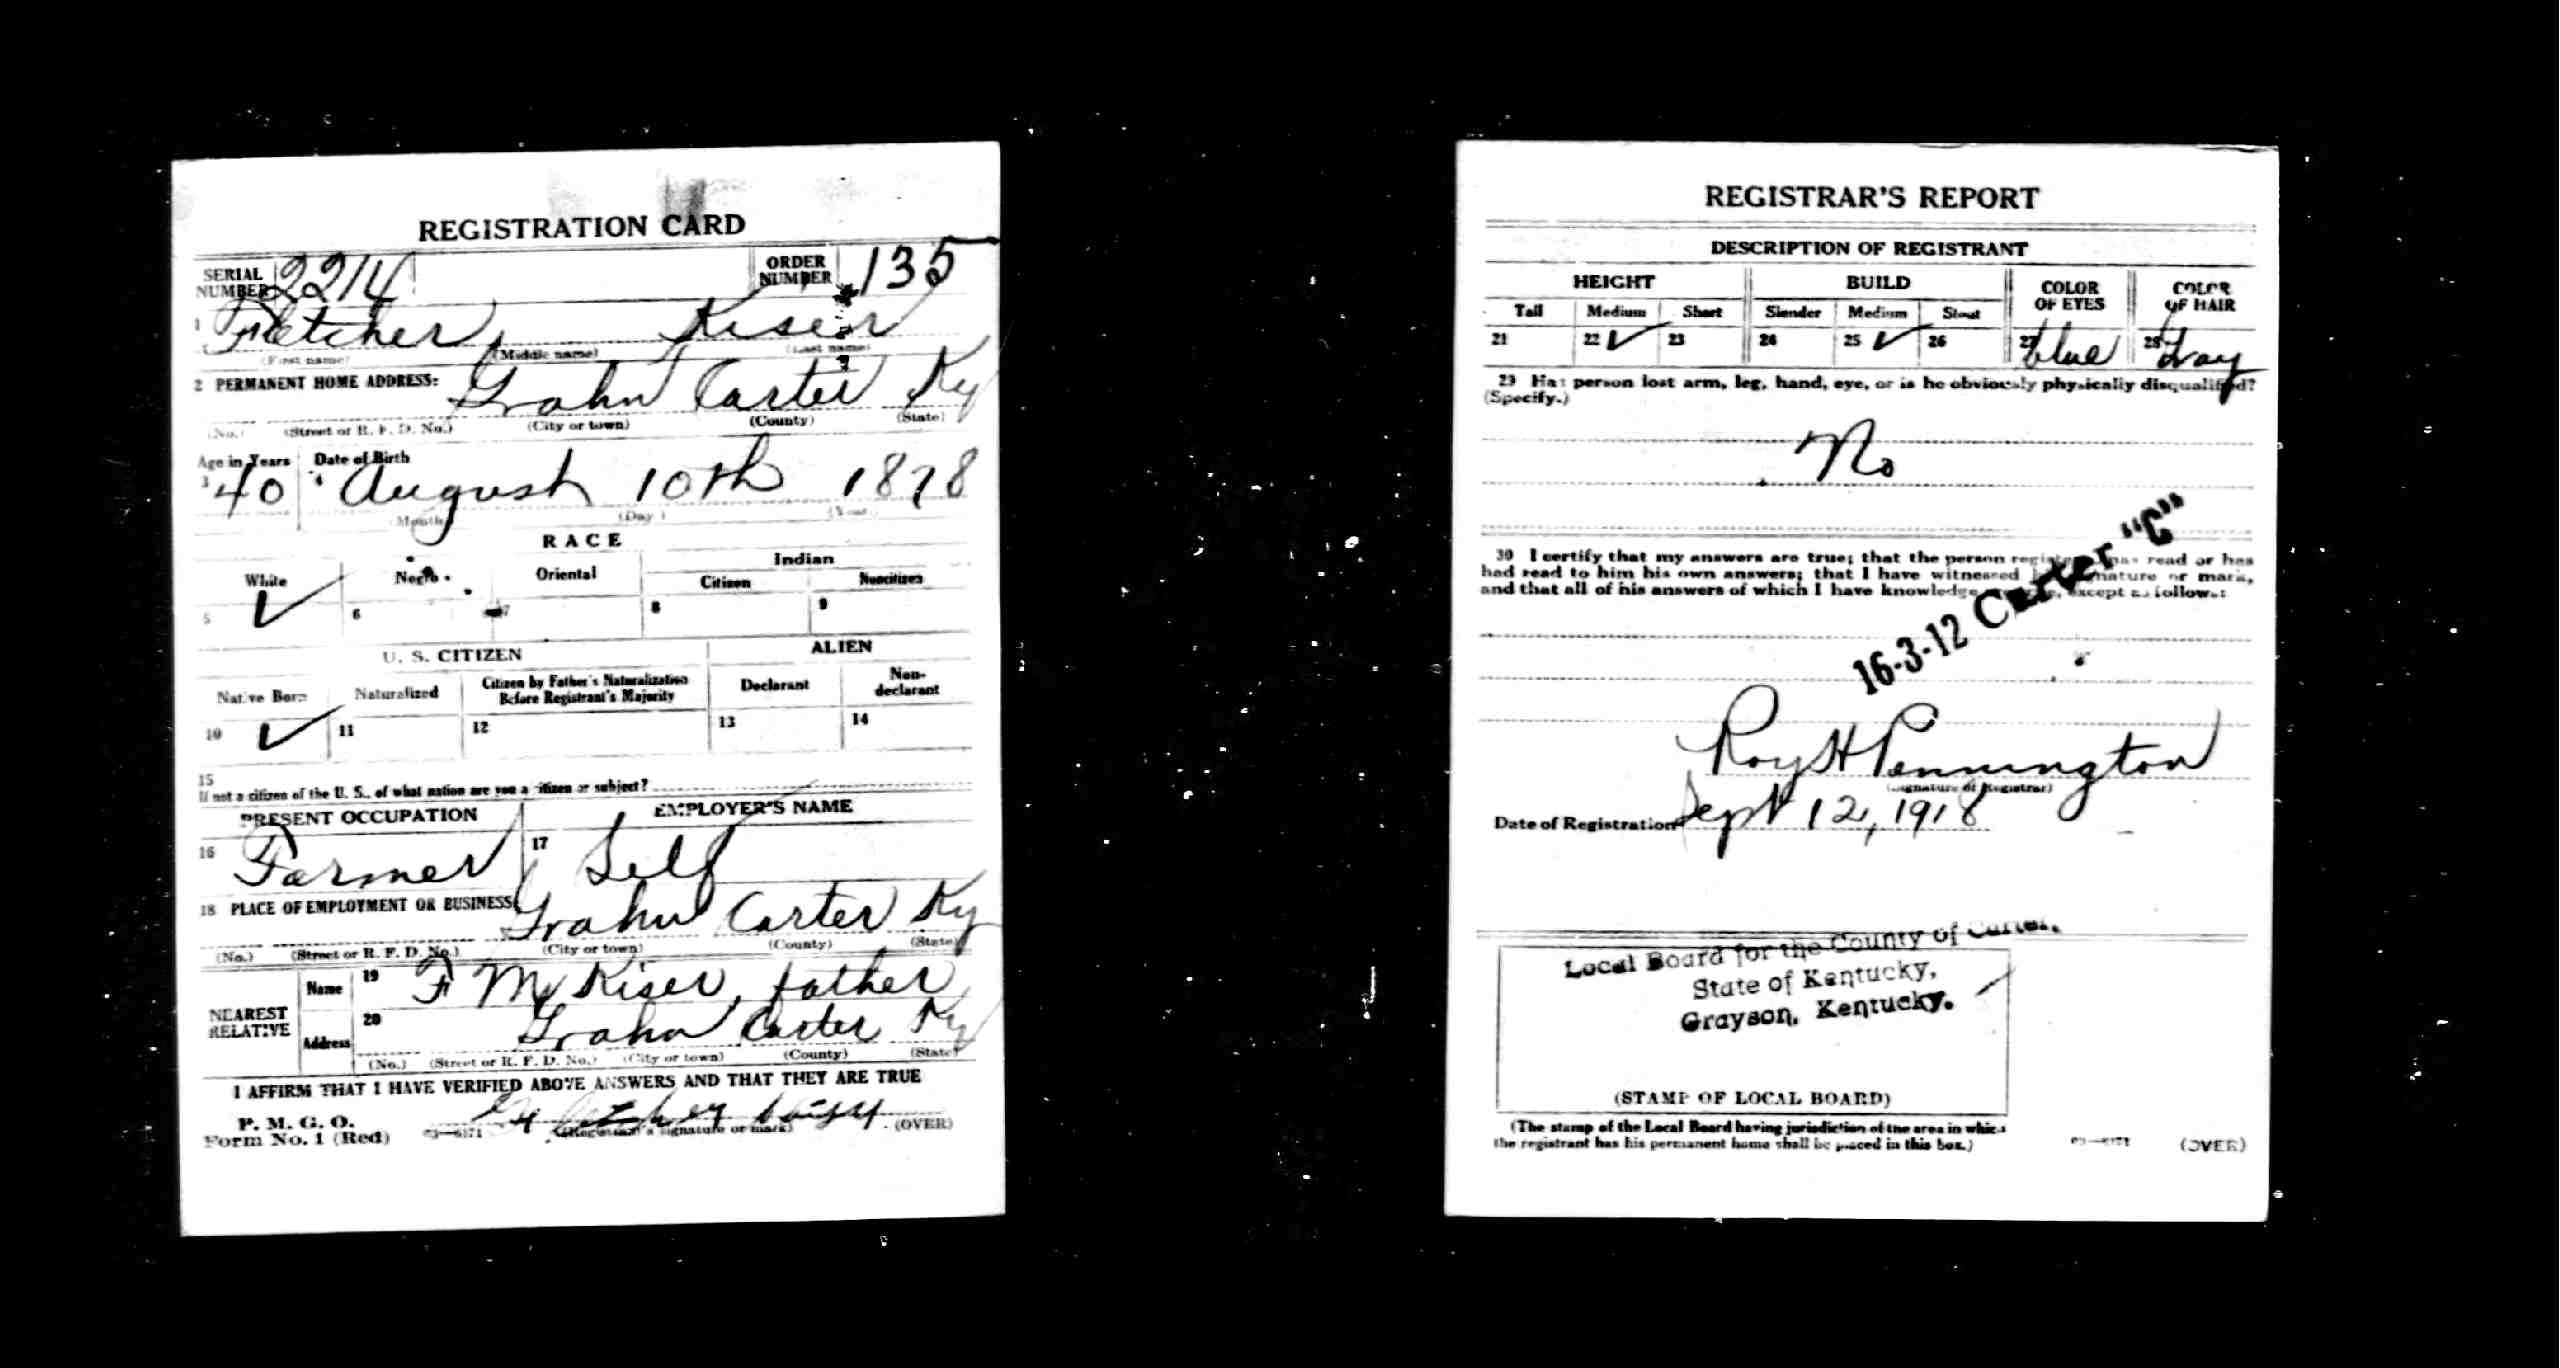 REGISTRATION CARD
SERIAL NUMBER 2214 ORDER NUMBER 135
1 Fletcher Kiser
(First name) (Middle name) (Last name)
2 PERMANENT HOME ADDRESS: Grahn Carter Ky
(No.) (Street or R. F. D. No.) (City or town) (County) (State)
Age in Years Date of Birth
3 40 August 10th 1878
(Month) (Day) (Year)
RACE
White Negro Oriental Indian
Citizen Noncitizen
5 ✓ 6 7 8 9
U. S. CITIZEN ALIEN
Native Born Naturalized Citizen by Father's Naturalization Before Registrant's Majority Declarant Non-declarant
10 ✓ 11 12 13 14
15
If not a citizen of the U. S., of what nation are you a citizen or subject?
PRESENT OCCUPATION EMPLOYER'S NAME
16 Farmer 17 Self
18 PLACE OF EMPLOYMENT OR BUSINESS: Grahn Carter Ky
(No.) (Street or R. F. D. No.) (City or town) (County) (State)
NEAREST RELATIVE Name 19 F M Kiser, father
Address 20 Grahn Carter Ky
(No.) (Street or R. F. D. No.) (City or town) (County) (State)
I AFFIRM THAT I HAVE VERIFIED ABOVE ANSWERS AND THAT THEY ARE TRUE
P. M. G. O.
Form No. 1 (Red) 03—6171 (Registrant's signature or mark) (OVER)
REGISTRAR'S REPORT
DESCRIPTION OF REGISTRANT
HEIGHT BUILD COLOR OF EYES COLOR OF HAIR
Tall Medium Short Slender Medium Stout
21 22 ✓ 23 24 25 ✓ 26 27 blue 28 Gray
29 Has person lost arm, leg, hand, eye, or is he obviously physically disqualified?
(Specify.)
No
30 I certify that my answers are true; that the person registered has read or has
had read to him his own answers; that I have witnessed his signature or mark,
and that all of his answers of which I have knowledge are true, except as follows:
16-3-12 Carter "C"
Roy H Pennington
(Signature of Registrar)
Date of Registration Sept 12, 1918
Local Board for the County of Carter,
State of Kentucky,
Grayson, Kentucky.
(STAMP OF LOCAL BOARD)
(The stamp of the Local Board having jurisdiction of the area in which
the registrant has his permanent home shall be placed in this box.)
03—6171 (OVER)